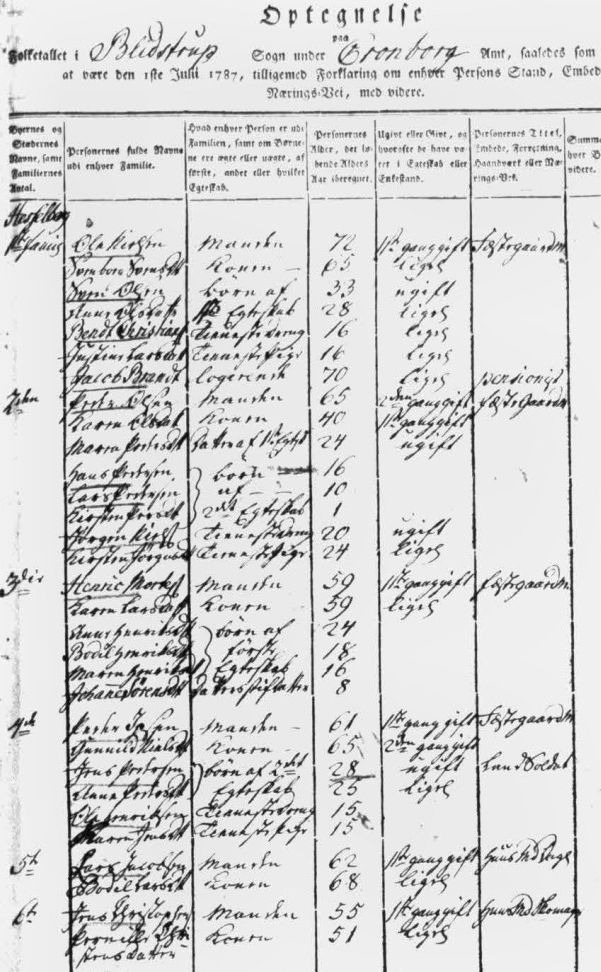 Optegnelse
paa
Folketallet i Blidstrup Sogn under Cronborg Amt, saaledes som
at være den 1ste Julii 1787, tilligemed Forklaring om enhver Persons Stand, Embed
Nærings-Vei, med videre.
Byernes og Stædernes Navne, samt Familiernes Antal.
Personernes fulde Navne udi enhver Familie.
Hvad enhver Person er udi Familien, samt om Børnene ere ægte eller uægte, af første, andet eller hvilket Egteskab.
Personernes Alder, det løbende Alders Aar iberegnet.
Ugivt eller Givt, og hvorofte de have været i Egteskab eller Enkestand.
Personernes Titel, Embede, Forretning, Haandværk eller Nærings-Vei.
Summa
hver B
videre.
Hesselberg
1ste familie Ole Nielsen Manden 72 1ste gang gift Fæstegaardm
Konen 65 liges
Svend Olsen børn af 33 ugift
1ste Egteskab 28 liges
Bendt Christians Tienestedreng 16 liges
Tienestepige 16 liges
Jacob Brandt logerende 70 liges pensionist
2den Peder Olsen Manden 65 2den gang gift Fæstegaardm
Karen Olsdat Konen 40 1ste gang gift
Maren Pedersdt Datter af 1ste Egtes 24 ugift
Hans Pedersen børn 16
Lars Pedersen af 10
Kirsten Persdt 2det Egteskab 1
Jørgen Niels Tienestedreng 20 ugift
Kirsten Jørgensd Tienestepige 24 liges
3die Henric Mortens Manden 59 1ste gang gift Fæstegaardm
Karen Larsdat Konen 59 liges
Anne Henriksdt børn af 24
Bodil Henriksdt første 18
Maren Henriksdt Egteskab 16
Johane Sørensdt 8
4de Peder Manden 61 1ste gang gift Fæstegaardm
Gunnild Nielsdt Konen 65 2den gang gift
Jens Pedersen børn af 2det 28 ugift Land Soldat
Anne Pedersdt Egteskab 25 liges
Ole Henriksen Tienestedreng 15
Maren Jensdt Tienestepige 15
5te Lars Jacobsen Manden 62 1ste gang gift
Bodil Larsdt Konen 68 liges
6te Jens Christophers Manden 55 1ste gang gift
Pernille Chri Konen 51 liges
stensdatter